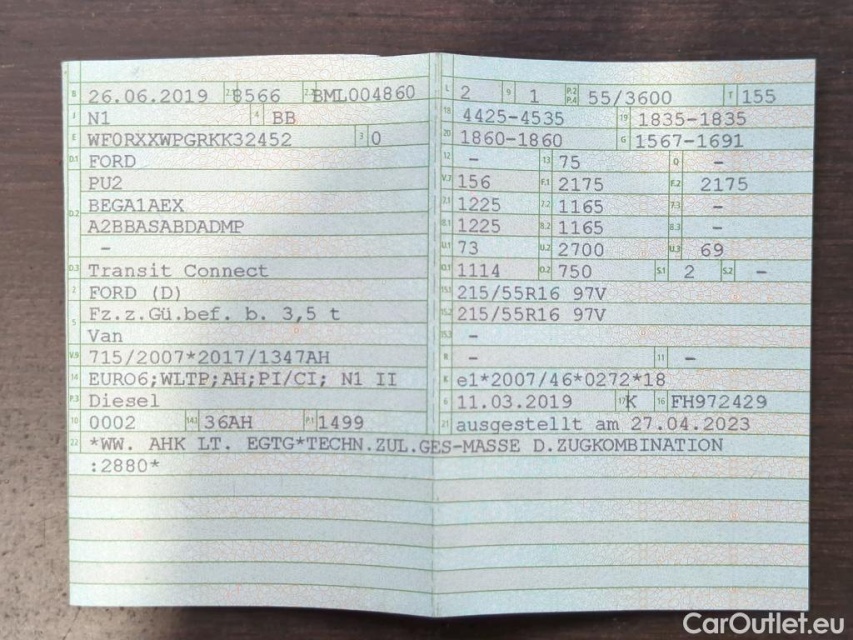 B 26.06.2019 2.1 8566 2.2 BML004860
J N1 4 BB
E WF0RXXWPGRKK32452 3 0
D.1 FORD
PU2
D.2 BEGA1AEX
A2BBASABDADMP
-
D.3 Transit Connect
2 FORD (D)
5 Fz.z.Gü.bef. b. 3,5 t
Van
V.9 715/2007*2017/1347AH
14 EURO6;WLTP;AH;PI/CI; N1 II
P.3 Diesel
10 0002 14.1 36AH P.1 1499
22 *WW. AHK LT. EGTG*TECHN.ZUL.GES-MASSE D.ZUGKOMBINATION
:2880*
L 2 9 1 P.2 P.4 55/3600 T 155
18 4425-4535 19 1835-1835
20 1860-1860 G 1567-1691
12 - 13 75 Q -
V.7 156 F.1 2175 F.2 2175
7.1 1225 7.2 1165 7.3 -
8.1 1225 8.2 1165 8.3 -
U.1 73 U.2 2700 U.3 69
O.1 1114 O.2 750 S.1 2 S.2 -
15.1 215/55R16 97V
15.2 215/55R16 97V
15.3 -
R - 11 -
K e1*2007/46*0272*18
6 11.03.2019 17 K 16 FH972429
21 ausgestellt am 27.04.2023
CarOutlet.eu